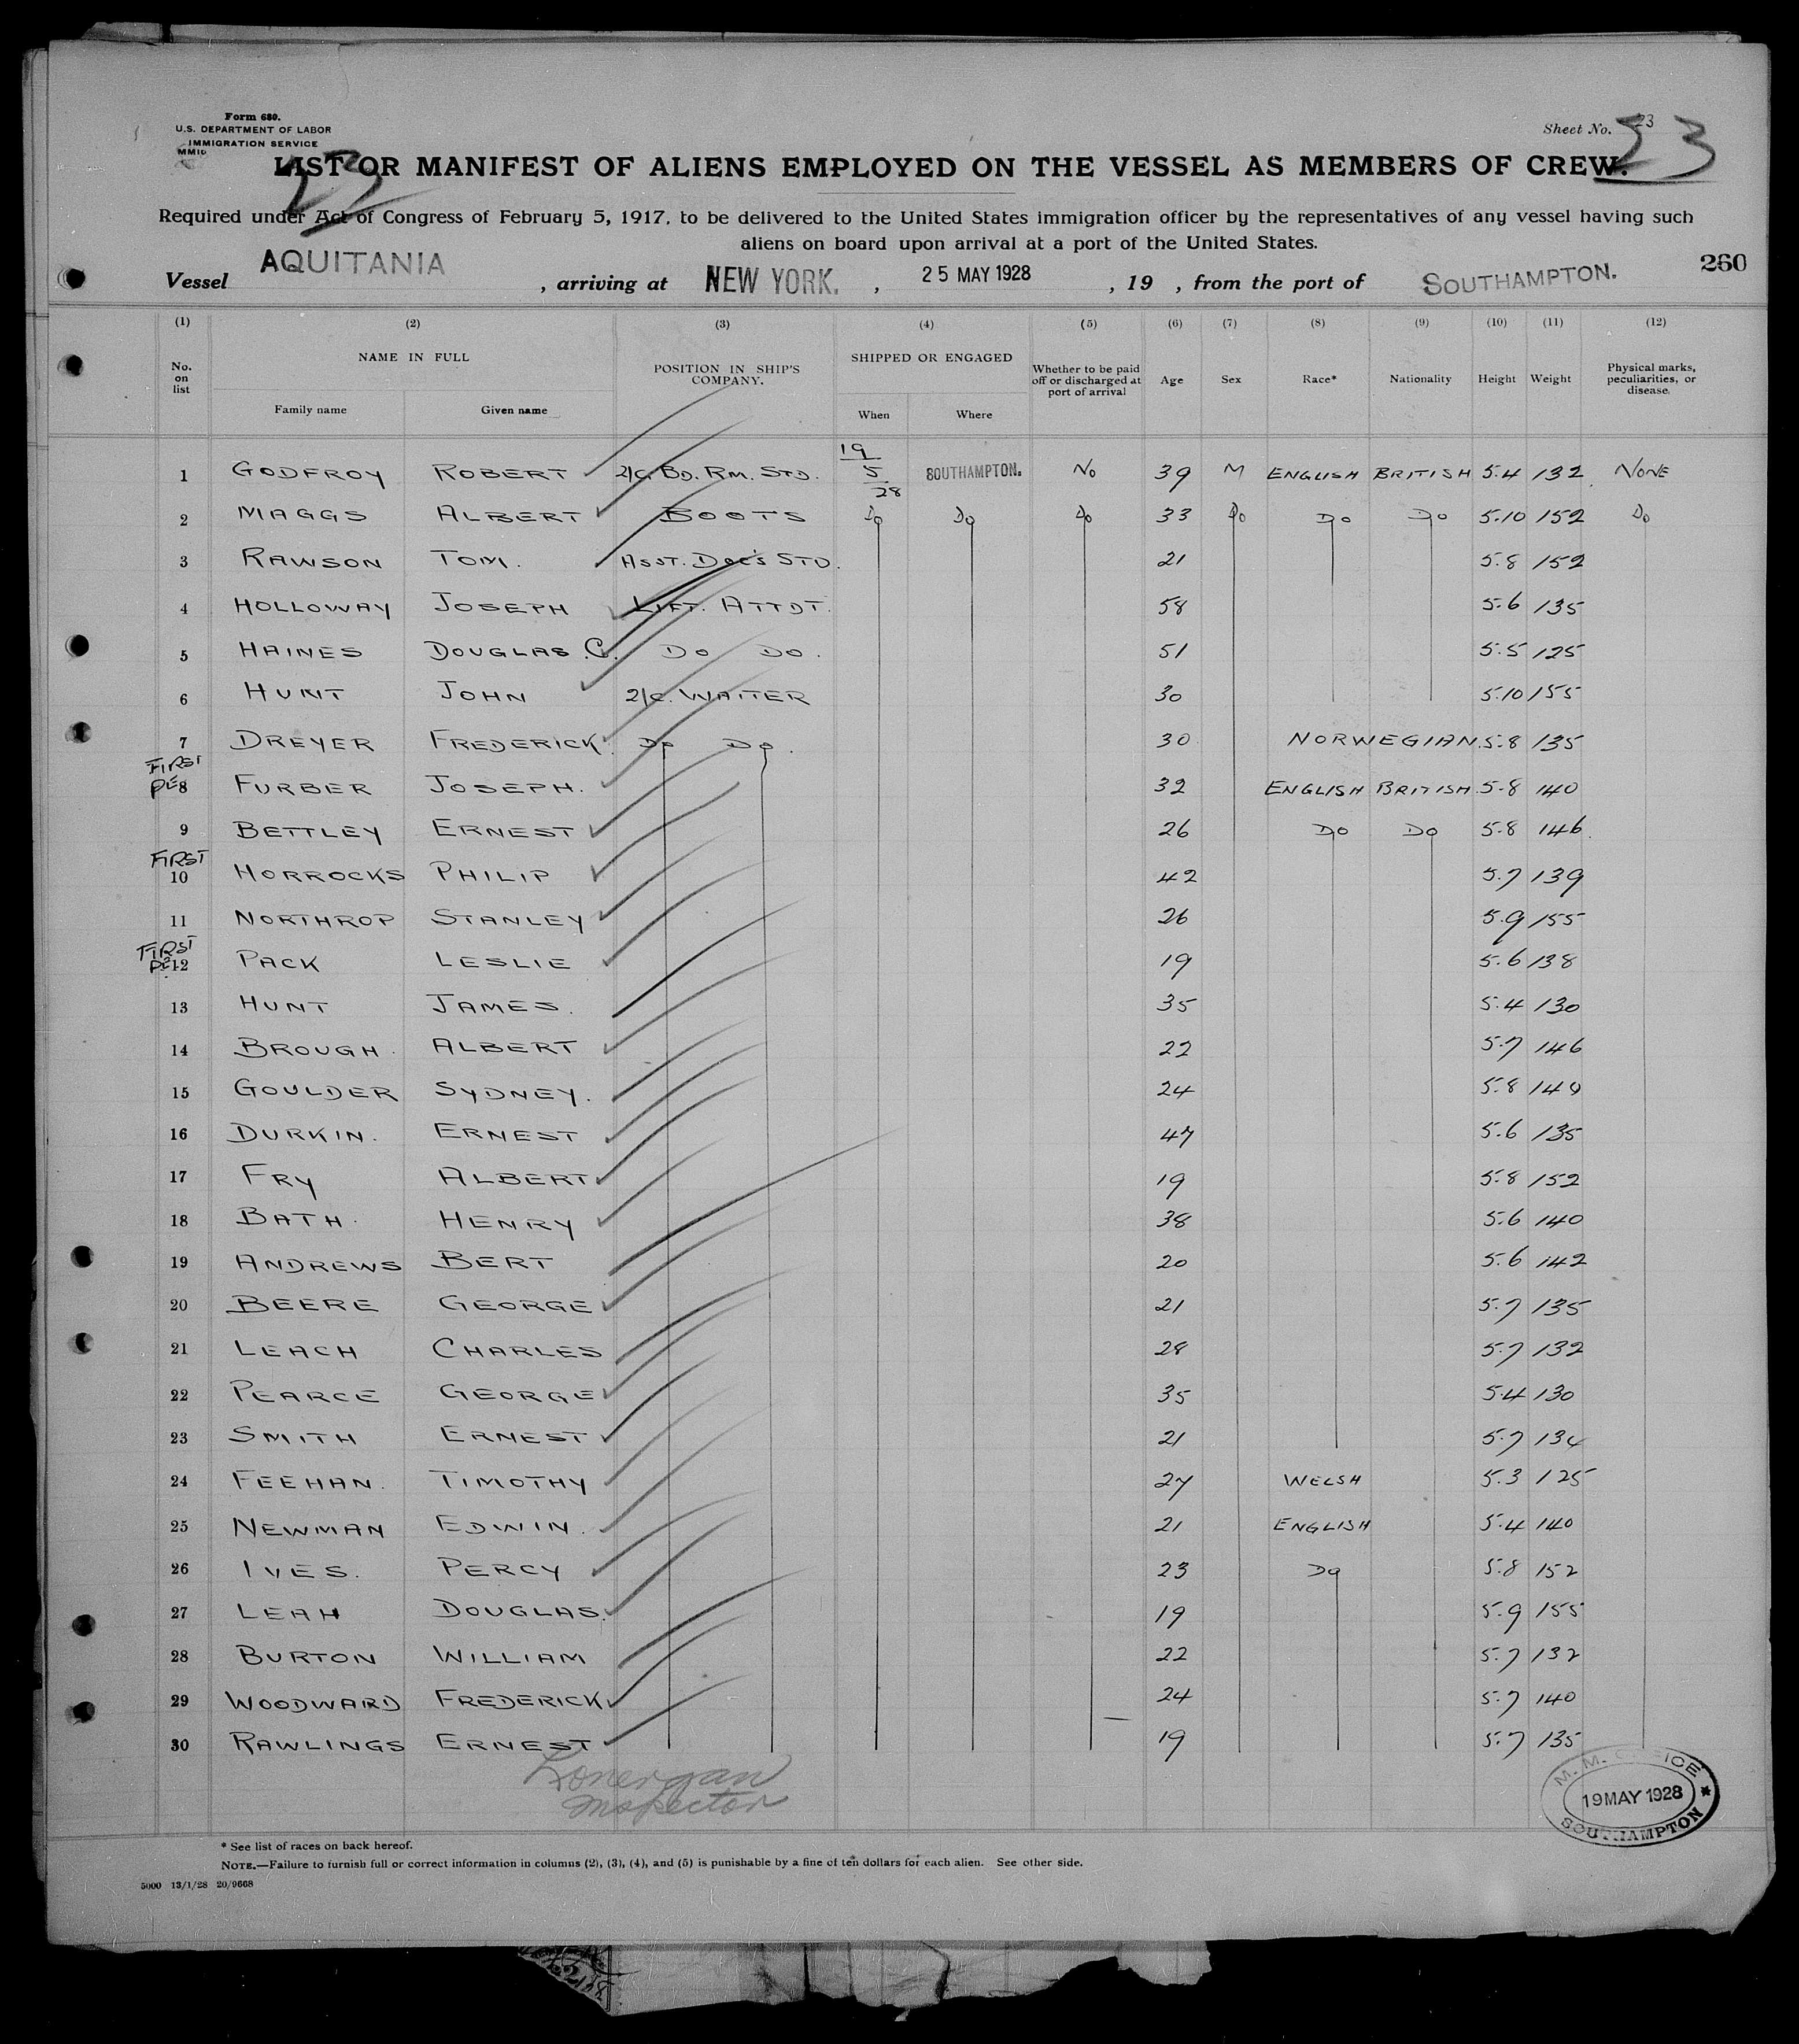 Form 680.
U.S. DEPARTMENT OF LABOR
IMMIGRATION SERVICE
Sheet No. 23
23
LIST OR MANIFEST OF ALIENS EMPLOYED ON THE VESSEL AS MEMBERS OF CREW.
Required under Act of Congress of February 5, 1917, to be delivered to the United States immigration officer by the representatives of any vessel having such
aliens on board upon arrival at a port of the United States.
260
Vessel AQUITANIA, arriving at NEW YORK., 25 MAY 1928, 19 , from the port of SOUTHAMPTON.
(1) (2) (3) (4) (5) (6) (7) (8) (9) (10) (11) (12)
No. on list NAME IN FULL POSITION IN SHIP'S COMPANY. SHIPPED OR ENGAGED Whether to be paid off or discharged at port of arrival Age Sex Race* Nationality Height Weight Physical marks, peculiarities, or disease.
Family name Given name When Where
1 GODFROY ROBERT 2/C. BD. RM. STD. 19/5/28 SOUTHAMPTON. NO 39 M ENGLISH BRITISH 5.4 132 NONE
2 MAGGS ALBERT BOOTS DO DO DO 33 DO DO DO 5.10 152 DO
3 RAWSON TOM. ASST. DOC'S STD. 21 5.8 152
4 HOLLOWAY JOSEPH LIFT. ATTDT. 58 5.6 135
5 HAINES DOUGLAS.C. DO DO. 51 5.5 125
6 HUNT JOHN 2/C. WAITER 30 5.10 155
7 DREYER FREDERICK. DO DO. 30 NORWEGIAN. 5.8 135
FIRST
8 FURBER JOSEPH. 32 ENGLISH BRITISH 5.8 140
9 BETTLEY ERNEST 26 DO DO 5.8 146.
FIRST
10 HORROCKS PHILIP 42 5.7 139
11 NORTHROP STANLEY 26 5.9 155
FIRST
12 PACK LESLIE 19 5.6 138
13 HUNT JAMES. 35 5.4 130
14 BROUGH. ALBERT 22 5.7 146
15 GOULDER SYDNEY. 24 5.8 149
16 DURKIN. ERNEST 47 5.6 135
17 FRY ALBERT 19 5.8 152
18 BATH. HENRY 38 5.6 140
19 ANDREWS BERT 20 5.6 142
20 BEERE GEORGE 21 5.7 135
21 LEACH CHARLES 28 5.7 132
22 PEARCE GEORGE 35 5.4 130
23 SMITH ERNEST 21 5.7 134
24 FEEHAN. TIMOTHY 27 WELSH 5.3 125
25 NEWMAN EDWIN. 21 ENGLISH 5.4 140
26 IVES. PERCY 23 DO 5.8 152
27 LEAH DOUGLAS. 19 5.9 155
28 BURTON WILLIAM 22 5.7 132
29 WOODWARD FREDERICK 24 5.7 140
30 RAWLINGS ERNEST 19 5.7 135
Lonergan
Inspector
M. M. OFFICE
19 MAY 1928
SOUTHAMPTON
* See list of races on back hereof.
NOTE.—Failure to furnish full or correct information in columns (2), (3), (4), and (5) is punishable by a fine of ten dollars for each alien. See other side.
5000 13/1/28 20/9668